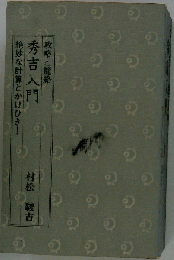 攻略と籠絡
秀吉入門
絶妙な計算とかけひき―
村松駿吉